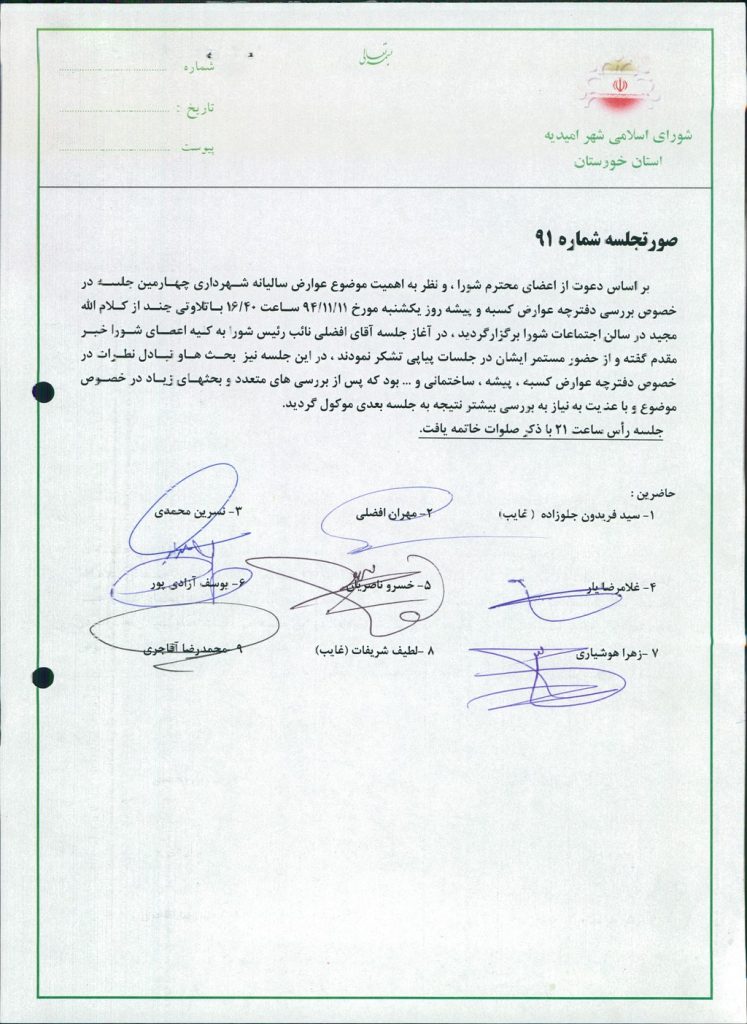 بسمه تعالی
شماره
تاریخ :
پیوست
شورای اسلامی شهر امیدیه
استان خوزستان
صورتجلسه شماره ۹۱
بر اساس دعوت از اعضای محترم شورا ، و نظر به اهمیت موضوع عوارض سالیانه شهرداری چهارمین جلسه در
خصوص بررسی دفترچه عوارض کسبه و پیشه روز یکشنبه مورخ ۹۴/۱۱/۱۱ ساعت ۱۶/۴۰ باتلاوتی چند از کلام الله
مجید در سالن اجتماعات شورا برگزارگردید ، در آغاز جلسه آقای افضلی نائب رئیس شورا به کلیه اعضای شورا خیر
مقدم گفته و از حضور مستمر ایشان در جلسات پیاپی تشکر نمودند ، در این جلسه نیز بحث هاو تبادل نظرات در
خصوص دفترچه عوارض کسبه ، پیشه ، ساختمانی و ... بود که پس از بررسی های متعدد و بحثهای زیاد در خصوص
موضوع و با عنایت به نیاز به بررسی بیشتر نتیجه به جلسه بعدی موکول گردید.
جلسه رأس ساعت ۲۱ با ذکر صلوات خاتمه یافت.
حاضرین :
۱- سید فریدون جلوزاده ( غایب) ۲- مهران افضلی ۳- نسرین محمدی
۴- غلامرضا یار ۵- خسرو ناصریان ۶- یوسف آزادی پور
۷ -زهرا هوشیاری ۸ -لطیف شریفات (غایب) ۹ -محمدرضا آقاجری